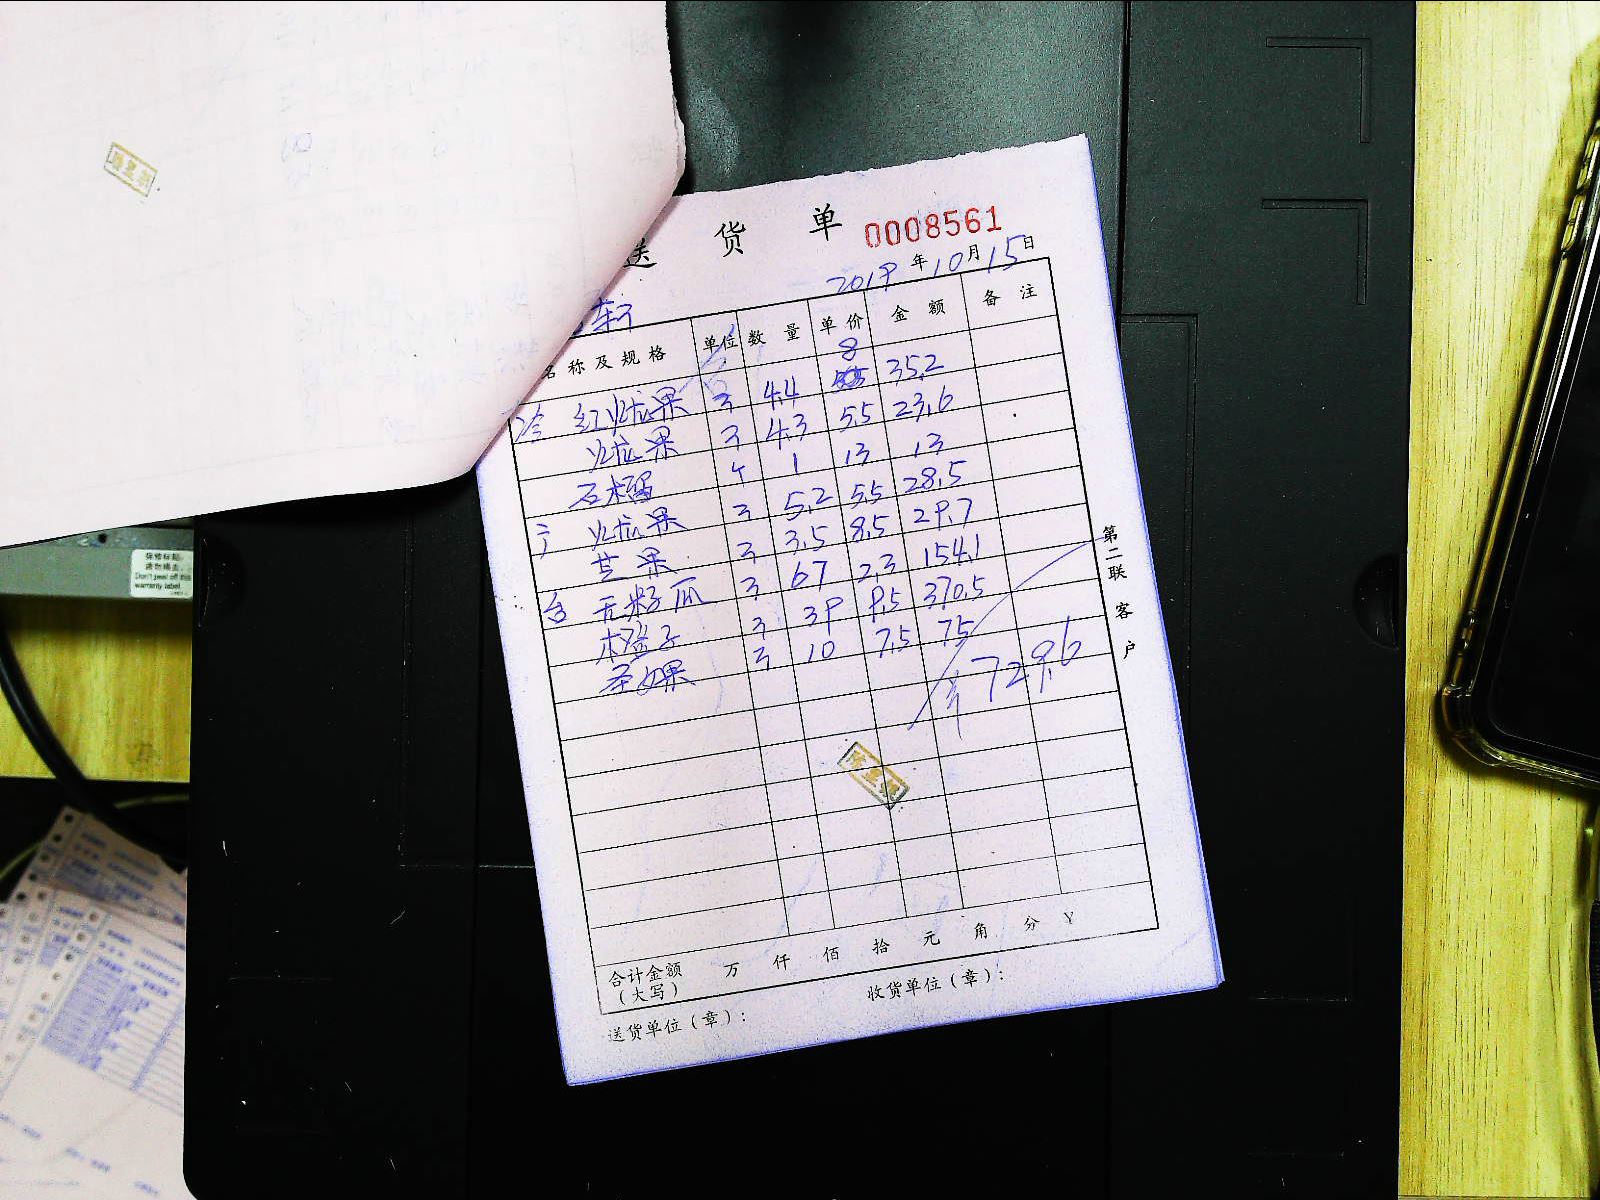 送 货 单 0008561
2019 年 10 月 15 日
轩
名 称 及 规 格 单位 数 量 单 价 金 额 备 注
冷 红火龙果 斤 4.4 8 35.2
火龙果 斤 4.3 5.5 23.6
石榴 个 1 13 13
火龙果 斤 5.2 5.5 28.5
芒果 斤 3.5 8.5 29.7
台 无籽瓜 斤 67 2.3 154.1
木瑶子 斤 39 9.5 370.5
圣女果 斤 10 7.5 75
729.6
合计金额
(大写) 万 仟 佰 拾 元 角 分 ¥
送货单位(章): 收货单位(章):
第二联 客户
Don't peel off this
warranty label